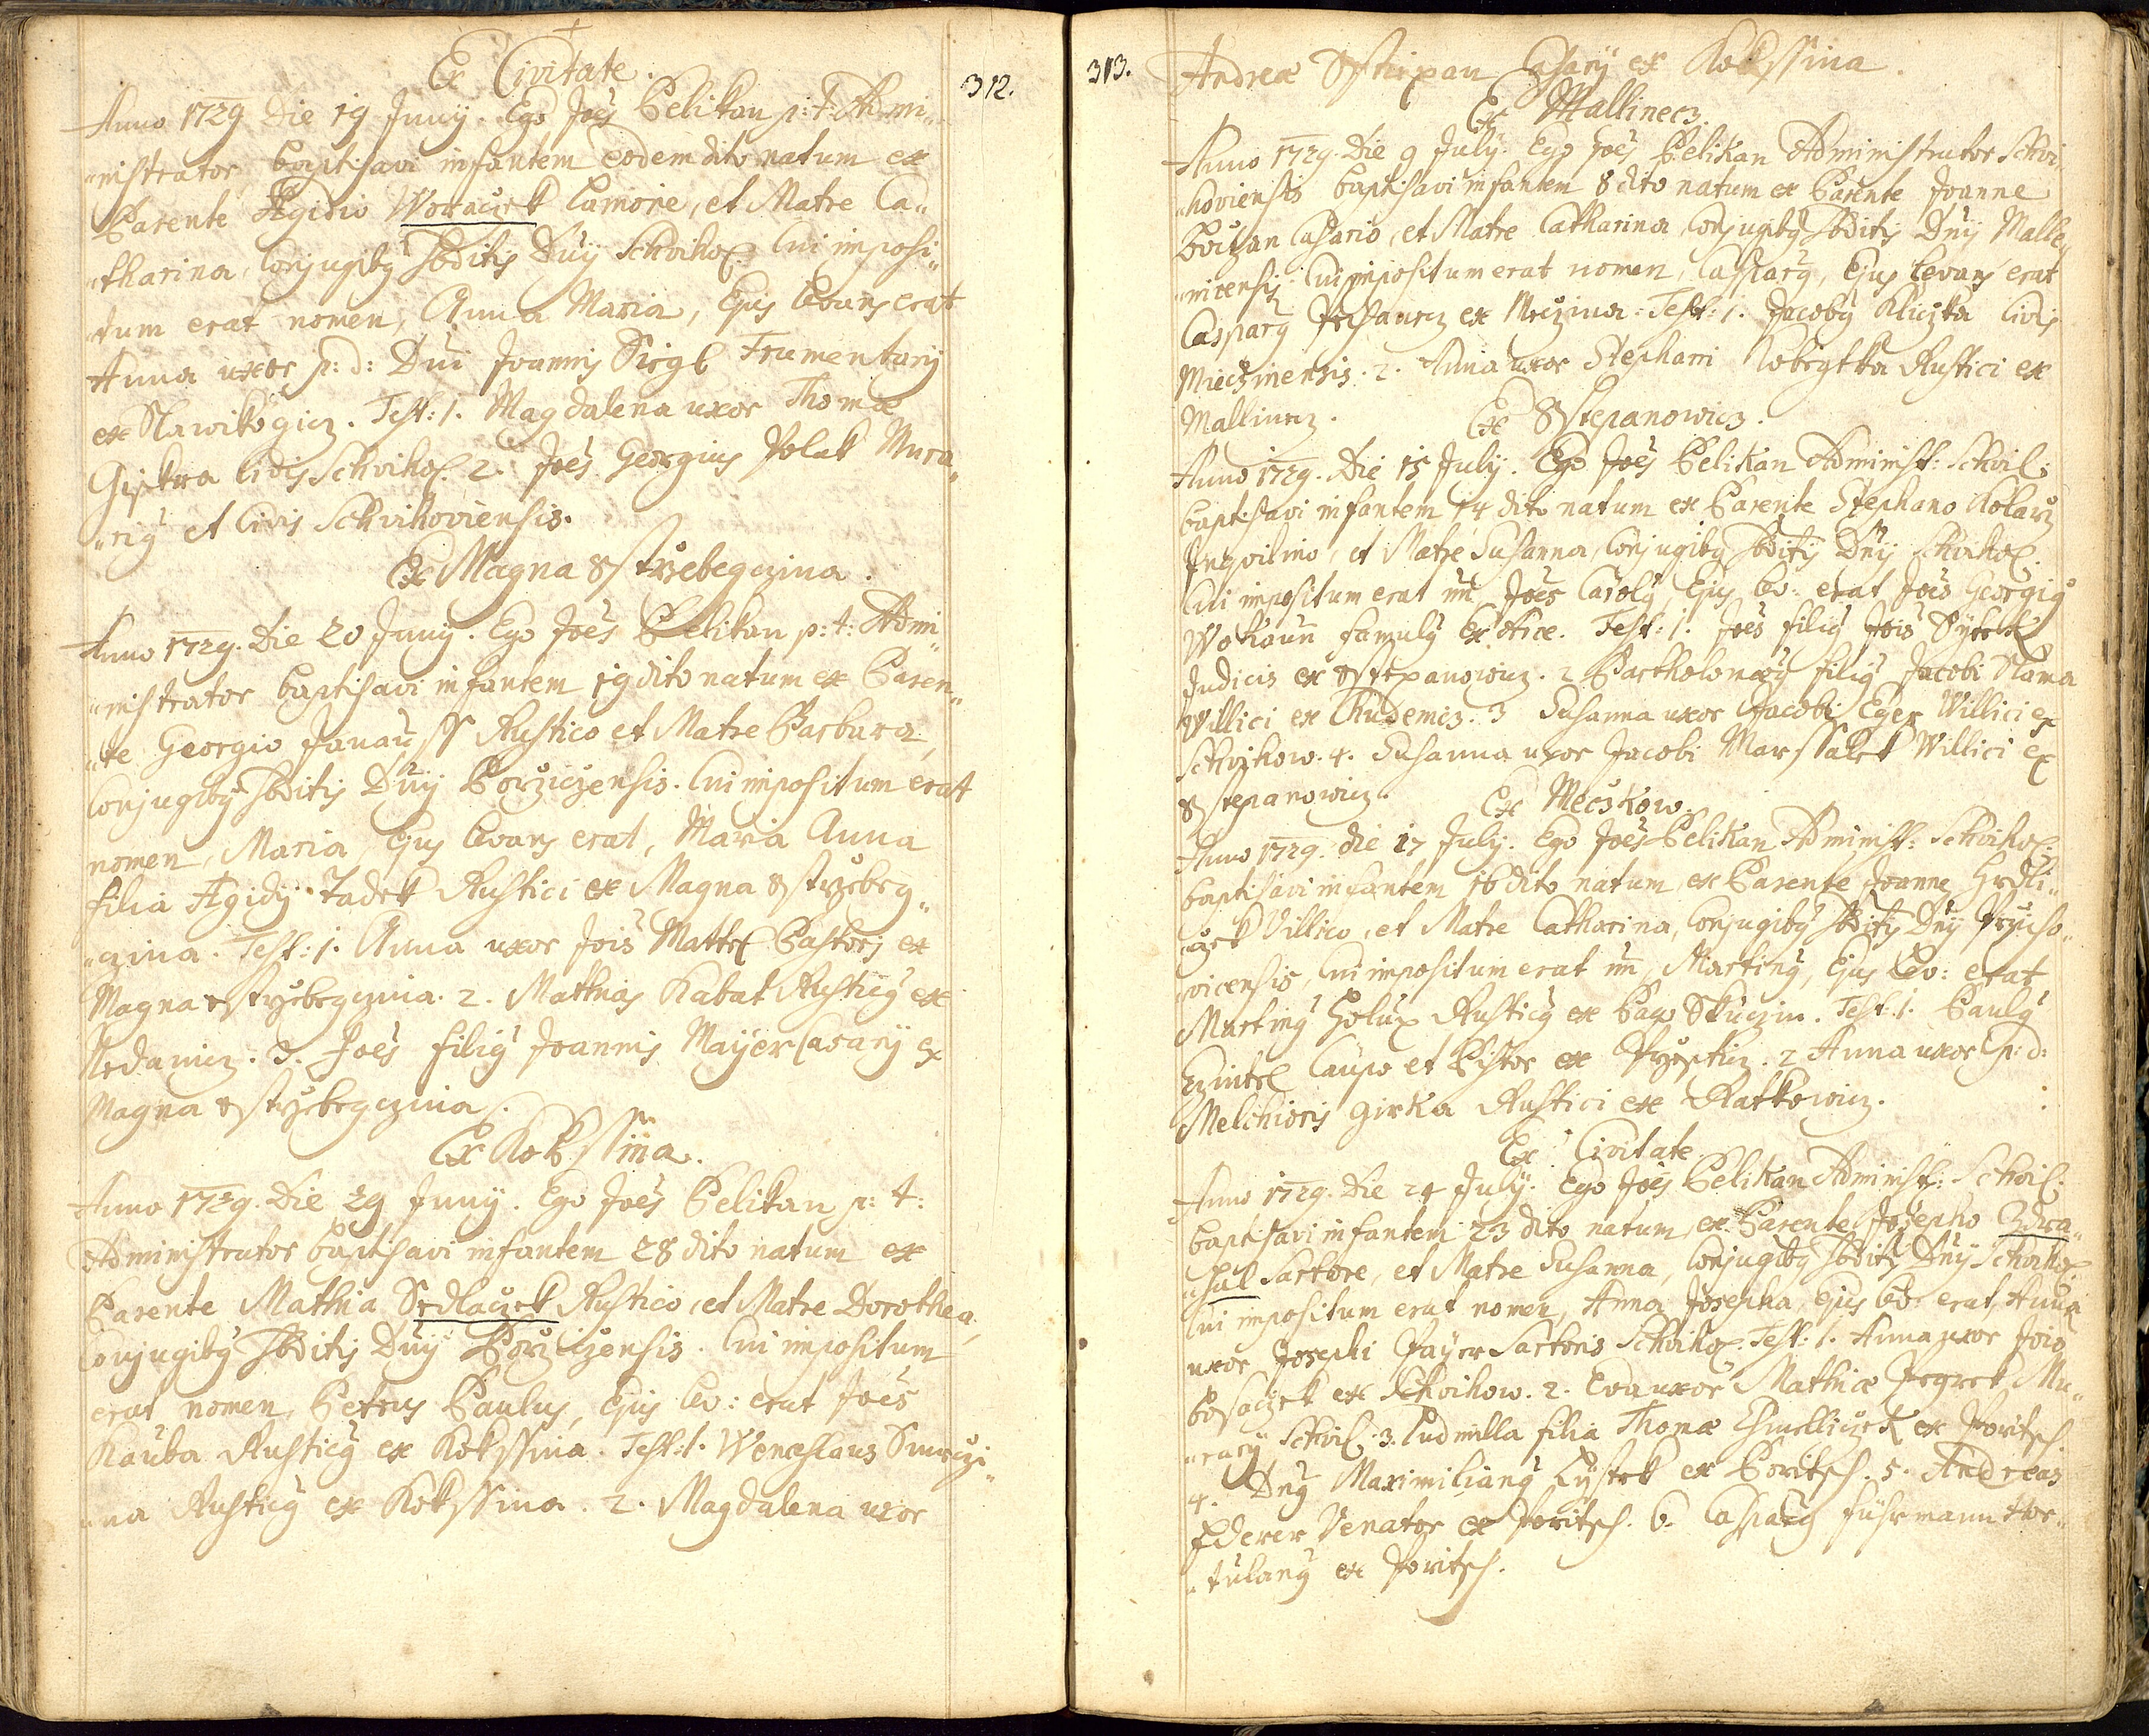 Ex Civitate.
312.
Anno 1729 Die 19 Junÿ. Ego Joês Pelikan p: t: Admi„
„nistrator baptisavi infantem eodem dito natum ex
Parente Ægidio Woraczek Lanione, et Matre Ca„
„tharina, Conjugibȳ sbditis Dnÿ Schvihoṽ. Cui imposi„
„tum erat nomen, Anna Maria, Ejus levans erat
Anna uxor p: d: Dni Joannis Siegl Frumentarÿ
ex Slawikogicz. Test: 1. Magdalena uxor Thomæ
Giskra Civis Schvihoṽ. 2. Joês Georgius Polak Mura„
„riȳ et Civis Schvihoviensis.
Ex Magna Sstrzebegczina.
Anno 1729. Die 20 Junÿ. Ego Joês Pelikan p: t: Admi„
„nistrator baptisavi infantem 19 dito natum ex Paren„
„te Georgio Janauss Rustico et Matre Barbara,
Conjugibȳ sbditis Dnÿ Porziczensis. Cui impositum erat
nomen, Maria, Ejus levans erat, Maria Anna
filia Ægidÿ Tadek Rustici ex Magna Sstrzebeg„
„czina. Test: 1. Anna uxor Jois Mattes Pastoris ex
Magna Sstrzebegczina. 2. Mathias Kabat Rusticȳ ex
Nedanicz. 3. Joês filiȳ Joannis Maÿer Casarÿ ex
Magna Sstrzebegczina.
Ex Kokssina.
Anno 1729. Die 29 Junÿ. Ego Joês Pelikan p: t:
Administrator baptisavi infantem 28 dito natum ex
Parente Mathia Sedlaczek Rustico, et Matre Dorothea,
Conjugibȳ sbditis Dnÿ Porziczensis. Cui impositum
erat nomen, Petrus Paulus, Ejus lev: erat Joês
Kauba Rusticȳ ex Kokssina. Test: 1. Wenceslaus Smrczi„
„na Rusticȳ ex Kokssina. 2. Magdalena uxor
313.
Andreæ Sstiepan Casarÿ ex Kokssina.
Ex Mallinecz.
Anno 1729. Die 9 Julÿ. Ego Joês Pelikan Administrator Schvi„
„hoviensis baptisavi infantem 8 dito natum ex Parente Joanne
Bouzan Casario, et Matre Catharina, Conjugibȳ sbditis Dnÿ Malle„
„nicensis. Cui impositum erat nomen, Casparȳ, Ejus levans erat
Casparȳ ex Meczina. Test: 1. Jacobȳ Kliczka Civis
Mieczinensis. 2. Anna uxor Stephani Kobrgtka Rustici ex
Mallinecz.
Ex Sstepanowicz.
Anno 1729. Die 15 Julÿ. Ego Joês Pelikan Administ: Schviĥ:
baptisavi infantem 14 dito natum ex Parente Stephano Kolarz
Inquilino, et Matre Susanna, Conjugibȳ sbditis Dnÿ Schvihoṽ.
Cui impositum erat nn̄, Joês Carolȳ, Ejus lev: erat Joês Georgiȳ
Wokaun famulȳ ex Arce. Test: 1. Joês filiȳ Jois Sÿtek
Judicis ex Sstepanowicz. 2 Bartholomæȳ filiȳ Jacobi Slama
Willici ex Rudemcz. 3 Susanna uxor Jacobi Eger Willici ex
Schvihow. 4. Susanna uxor Jacobi Marssalek Willici ex
Sstepanowicz.
Ex Mečskow.
Anno 1729. die 17 Julÿ. Ego Joês Pelikan Administ: Schvihoṽ:
baptisavi infantem 16 dito natum, ex Parente Joanne Hrdli„
„czek Villico, et Matre Catharina, Conjugibȳ sbditis Dnÿ Przicho„
„vicensis, Cui impositum erat nn̄, Martinȳ, Ejus lev: erat
Martinȳ Holup Rusticȳ ex Pago Skuczin. Test: 1. Paulȳ
Czintl Caupo et Pistor ex Przesticz. 2 Anna uxor p: d:
Melchioris Girka Rustici ex Ratkowicz.
Ex Civitate.
Anno 1729. Die 24 Julÿ. Ego Joês Pelikan Administ: Schviĥ.
baptisavi infantem 23 dito natum, ex Parente Josepho Zdra„
„hal Sartore, et Matre Susanna, Conjugibȳ sbditis Dnÿ Schvihoṽ.
Cui impositum erat nomen, Anna Josepha, Ejus lev: erat Anna
uxor Josephi Payer Sartoris Schvihoṽ. Test: 1. Anna uxor Jois
Bosaczek ex Schvihow. 2. Eva uxor Mathiæ Mu„
„rarÿ Schviĥ: 3. Ludmilla filia Thomæ Chmelliczek ex Poritsch.
4. Dnȳ Maximilianȳ Lÿstek ex Poritsch. 5. Andreas
Ederer Venator ex Poritsch. 6. Casparȳ Fuhrmann Hor„
„tulanȳ ex Poritsch.